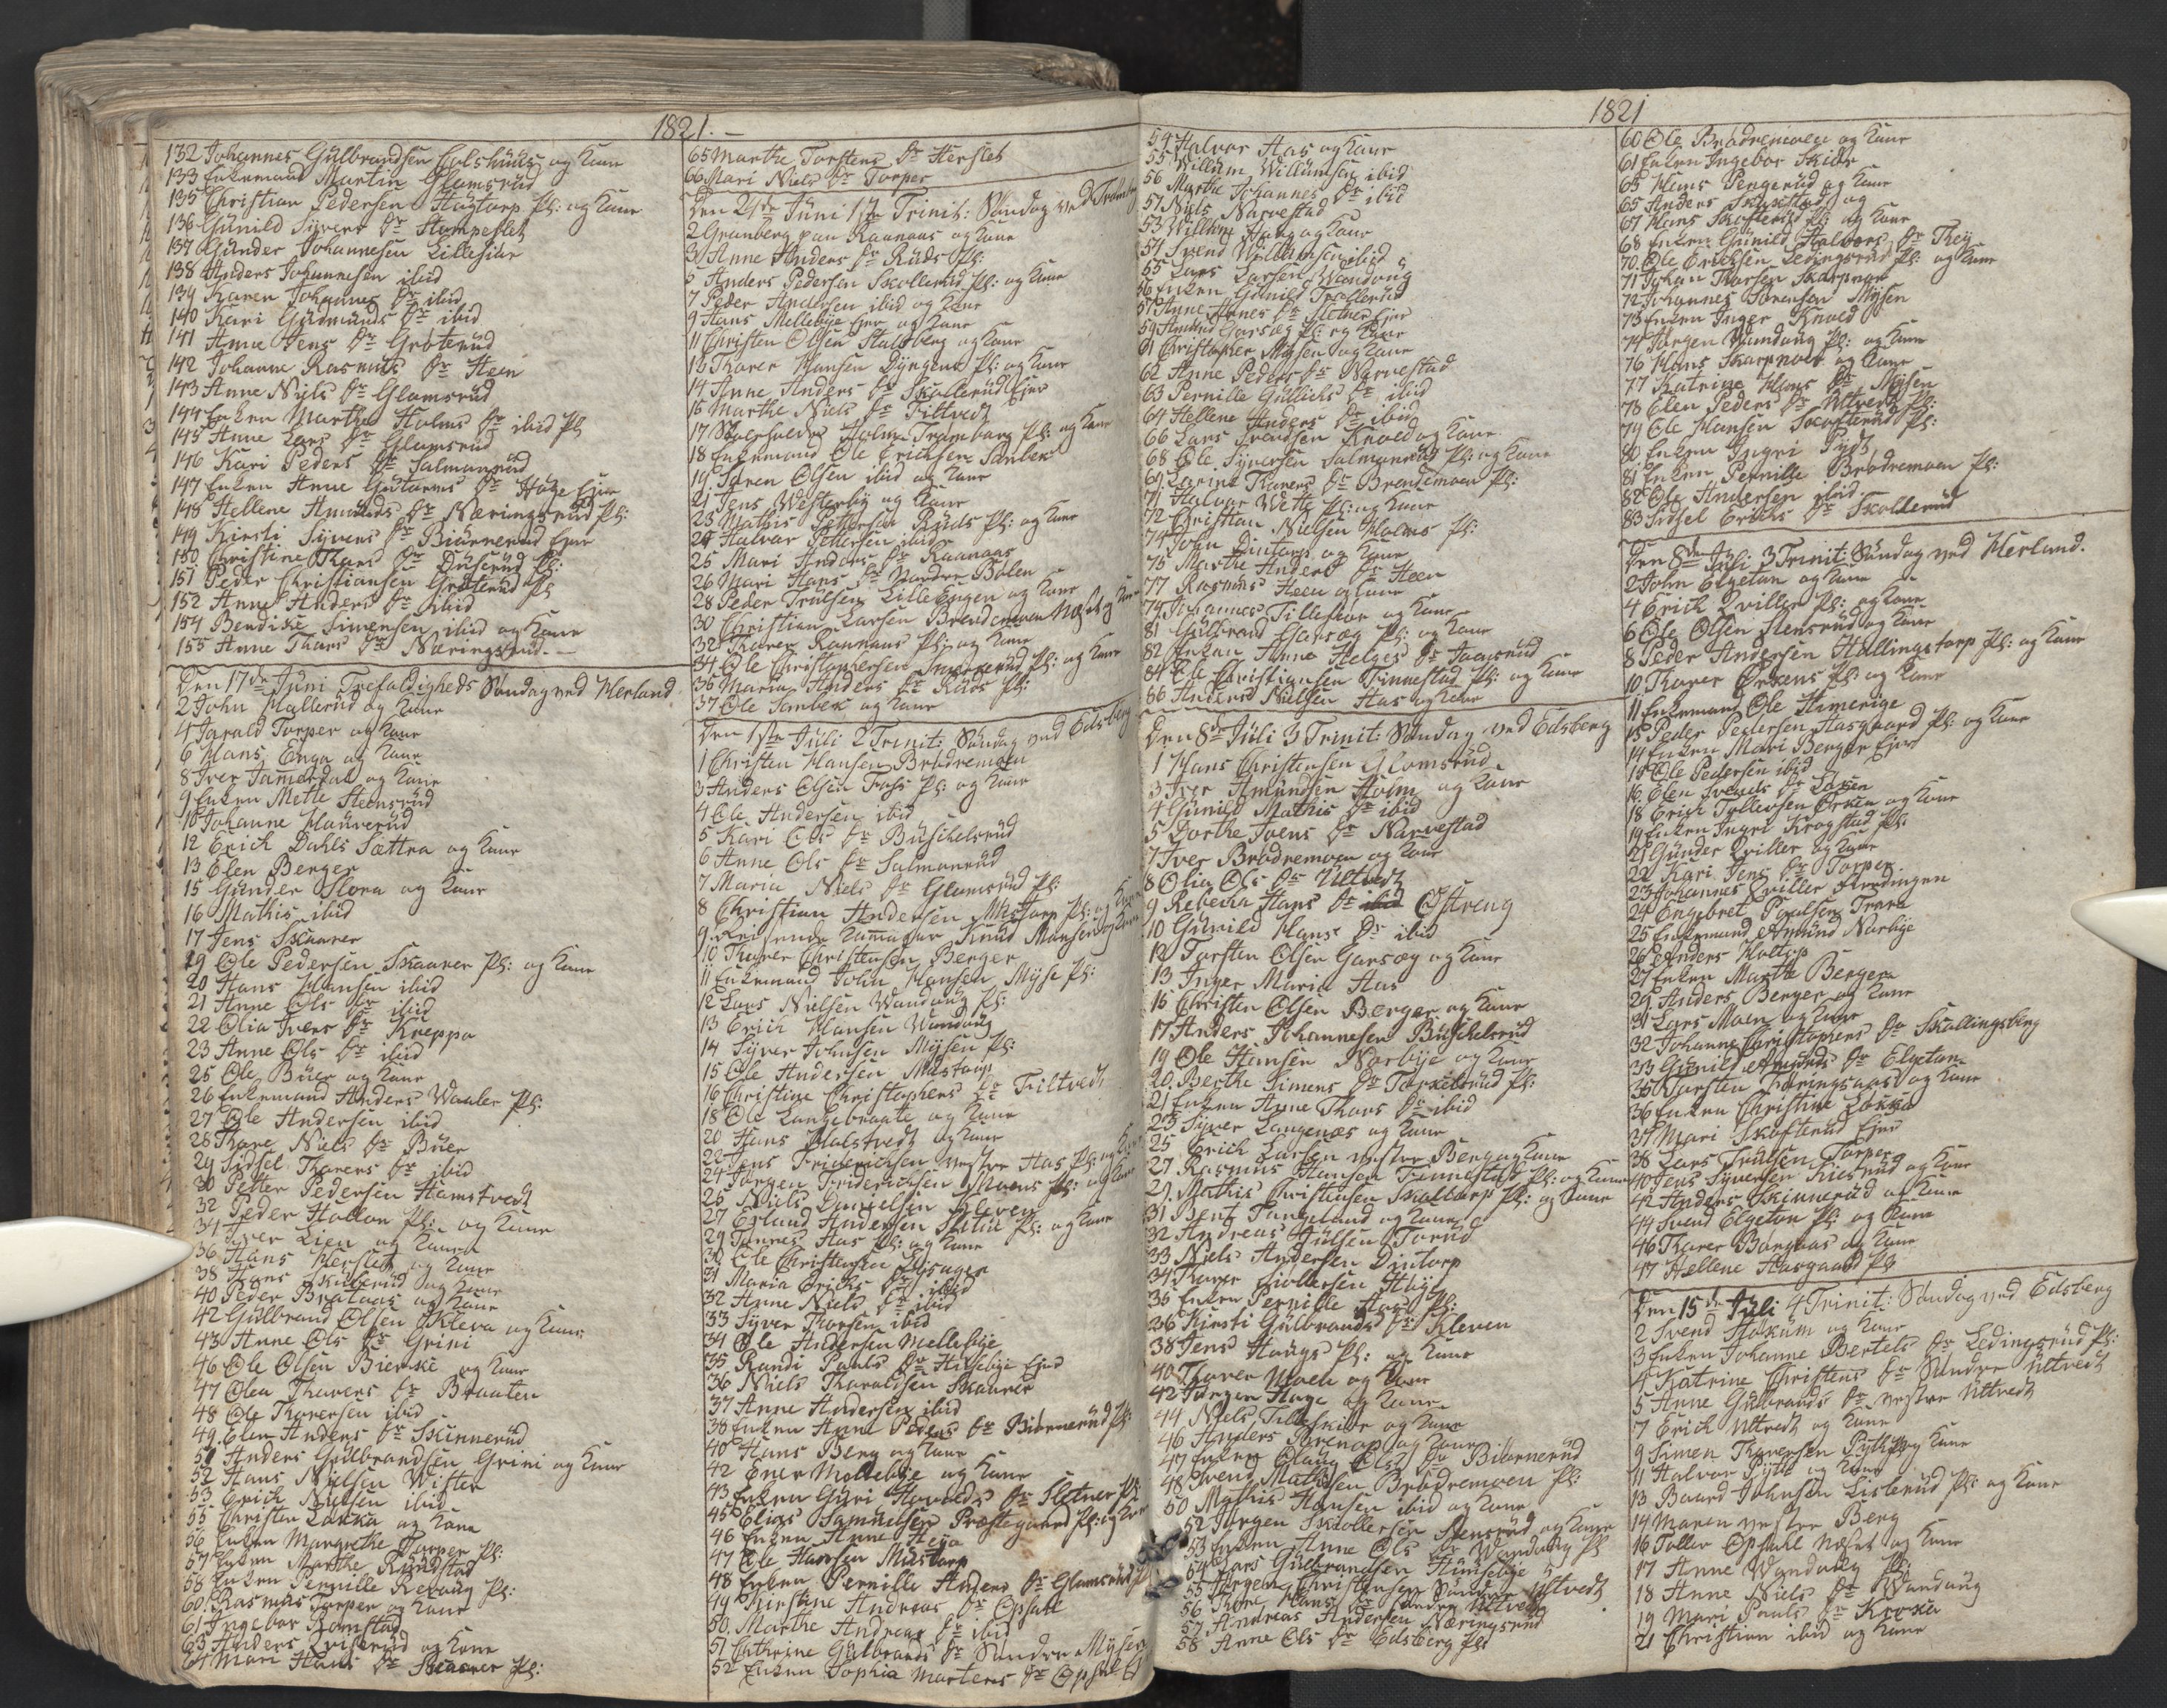 1821. -
132 Johannes Gülbrandsen Colshuus og Kone
133 Enkemand Martin Glamsrüd
135 Christian Pedersen Haÿtorp Pl: og Kone
136 Günild Syvers Dr Stompeslet
137 Günder Johannesen Lillesiär
138 Anders Johannesen ibid
139 Karen Johannes Dr ibid
140 Kari Gudmunds Dr ibid
141 Anne Jens Dr Grøterüd
142 Johanne Rasmus Dr Heen
143 Anne Niels Dr Glamsrüd
144 Enken Marthe Holms Dr ibid Pl
145 Anne Lars Dr Glamsrüd
146 Kari Peders Dr Salmonrüd
147 Enken Anne Dr Hage Ejer
148 Hellene Amünds Dr Næringsrüd Pl:
149 Kirsti Syvers Dr Biørnerüd Ejer
150 Christine Thoes Dr Düserüd Pl:
151 Peder Christiansen Grøterüd Pl
152 Anne Anders Dr ibid
154 Bendix Simensen ibid og Kone
155 Anne Thoes Dr Næringsrüd. -
Den 17de Juni Trefoldigheds Søndag ved Herland
2 John Hallerüd og Kone
4 Harald Torper og Kone
6 Hans Enga og Kone
8 Iver Jamerdal og Kone
9 Enken Mette Steensrüd
10 Johanne Haurerüd
12 Erich Dahls Sættra og Kone
13 Elen Berger
15 Günder Slora og Kone
16 Mathis ibid
17 Jens Skaarer
19 Ole Pedersen Skaarer Pl: og Kone
20 Hans Hansen ibid
21 Anne Ols Dr ibid
22 Olia Ivers Dr Kreppa
23 Anne Ols Dr ibid
25 Ole Büer og Kone
26 Enkemand Anders Waaler Pl:
27 Ole Andersen ibid
28 Thore Niels Dr Büer
29 Sidsel Thorers Dr ibid
30 Petter Pedersen Hamstvedt
32 Peder Hollon Pl: og Kone
34 Iver Lien og Kone
36 Hans Herslet og Kone
38 Hans Sküllerüd og Kone
40 Peder Brataas og Kone
42 Gülbrand Olsen Kleva og Kone
43 Anne Ols Dr Grini
46 Ole Olsen Bierke og Kone
47 Olea Thorers Dr Braaten
48 Ole Thoresen ibid
49 Elen Anders Dr Skinnerüd
51 Anders Gülbrandsen Grini og Kone
52 Hans Nielsen Wister
53 Erich Nielsen ibid
55 Christen Løkka og Kone
56 Enken Margrethe Torper Pl:
57 Enken Marthe Rundstad
58 Enken Pernille Revaug Pl:
60 Rasmus Torper og Kone
61 Ingebor Romstad
63 Anders Qvislerüd og Kone
64 Mari Hans Dr Skaarer Pl:
65 Marthe Torstens Dr Herslet
66 Mari Niels Dr Torper
Den 24de Juni 1ste Trinit: Søndag ved Trømborg
2 Grønberg paa Raanaas og Kone
3 Anne Anders Dr Rüds Pl:
5 Anders Pedersen Skollerüd Pl: og Kone
7 Peder Andersen ibid og Kone
9 Hans Mellebye Ejer og Kone
11 Christen Olsen Stalsberg og Kone
13 Thorer Hansen Dyngens Pl: og Kone
14 Anne Anders Dr Skallerüd Ejer
16 Marthe Niels Dr Filtvedt
17 Holm Trømborg Pl: og Kone
18 Enkemand Ole Erichsen Sanbek
19 Søren Olsen ibid og Kone
21 Jens Westerby og Kone
23 Mathis Pettersen Rüds Pl: og Kone
24 Halvor Pettersen ibid
25 Mari Anders Dr Raanaas
26 Mari Hans Dr Nordre Bølen
28 Peder Trülsen Lille Engen og Kone
30 Christian Larsen Brødremoen Næset og Kone
32 Thorer Raanaas Pl: og Kone
34 Ole Christophersen Pl: og Kone
35 Maria Anders Dr Rüds Pl:
37 Ole Sanbek og Kone
Den 1ste Juli 2 Trinit: Søndag ved Edsberg
1 Christen Hansen Brødremoen
3 Anders Olsen Foss Pl: og Kone
4 Ole Andersen ibid
5 Kari Ols Dr Büschelsrüd
6 Anne Ols Dr Salmonrüd
7 Maria Niels Dr Glamsrüd Pl:
8 Christian Andersen Müstorp Pl: og Kone
9 Reisende Knud Hansen og Kone
10 Thorer Christensen Berger
11 Enkemand John Hansen Myse Pl:
12 Lars Nielsen Wandaüg Pl:
13 Erich Hansen Wandaüg
14 Syver Johnsen Mÿsen Pl:
15 Ole Andersen Müstorp
16 Christine Christophers Dr Filtvedt
18 Ole Langebraate og Kone
20 Hans Halstvedt og Kone
22 Jens Friderichsen vestre Has Pl: og Kone
24 Jørgen Friderichsen Moens Pl: og Kone
26 Niels Danielsen Kleven
27 Erland Andersen Sletne Pl: og Kone
29 Tønnes Has Pl: og Kone
30 Ole Christensen
31 Maria Erichs Dr ibid
32 Anne Niels Dr ibid
33 Syver Thorsen ibid
34 Ole Andersen Mellebÿe
35 Randi Pauls Dr Ejer
36 Niels Tharaldsen Skaarer
37 Anne Andersen ibid
38 Enken Anne Peders Dr Biørnerüd Pl:
40 Hans Berg og Kone
42 Ener Mollebÿe og Kone
43 Enken Güri Haralds Dr Sletner Pl
45 Elias Samüelsen Præstegaard Pl: og Kone
46 Enken Anne Heÿa
47 Ole Hansen Müstorp
48 Enken Pernille Anders Dr Glamsrüd Pl
49 Kirstine Andreas Dr Opsal
50 Marthe Andreas Dr ibid
51 Cathrine Gülbrands Dr Søndre Mÿsen
52 Enken Sophia Martens Dr Opsal
1821
54 Halvor Has og Kone
55 Willüm Willümsen ibid
56 Marthe Johannes Dr ibid
51 Niels Narvestad
53 Willüm Haug og Kone
54 Svend Willümsen ibid
55 Lars Larsen Wandaüg
56 Enken Günild Trollerüd
57 Anne Hanes Dr Sletner Ejer
59 Amünd Garsæg Pl: og Kone
61 Christopher Mÿsen og Kone
62 Anne Peders Dr Narvestad
63 Pernille Gullichs Dr ibid
64 Hellene Anders Dr ibid
66 Lars Svendsen Knoed og Kone
68 Ole Syversen Salmonrüd Pl: og Kone
69 Karine Thorers Dr Brødremoen Pl:
71 Halvor Wette Pl: og Kone
72 Christian Nielsen Holms Pl:
74 John Dintorp og Kone
75 Marthe Anders Dr Heen
77 Rasmus Heen og Kone
79 Johannes Tilleskær og Kone
81 Gülbrand Garsæg Pl: og Kone
82 Enken Anne Helges Dr
84 Ole Christiansen Finnestad Pl: og Kone
86 Anders Nielsen Has og Kone
Den 8de Juli 3 Trinit: Søndag ved Edsberg
1 Hans Christensen Glomsrüd
3 Iver Amundsen Holm og Kone
4 Günild Mathis Dr ibid
5 Dorthe Ivers Dr Narvestad
7 Iver Brødremoen og Kone
8 Olia Ols Dr Ültvedt
9 Rebecka Hans Dr ibid Østreng
10 Günild Hans Dr ibid
12 Torsten Olsen Garsæg og Kone
13 Inger Maria Has
15 Christen Olsen Berger og Kone
17 Anders Johannesen Büschelsrüd
19 Ole Hansen Narbÿe og Kone
20 Berthe Simens Dr Torkelsrüd Pl:
21 Enken Anne Thoes Dr ibid
23 Syver Langenæs og Kone
25 Erich Larsen vestre Berg og Kone
27 Rasmus Hansen Finnestad Pl: og Kone
29 Mathis Christensen Skaltorp Pl: og Kone
31 Bent Tangeland og Kone
32 Andreas Jülsen Torüd
33 Niels Andersen Dintorp
34 Thorer Siøllersen
35 Enken Pernille Has Pl:
36 Kirsti Gülbrands Dr Kleven
38 Jens Haugs Pl: og Kone
40 Thorer Moen og Kone
42 Jørgen Hage og Kone
44 Niels Tilleskiär og Kone
46 Anders og Kone
47 Enken Olaug Ols Dr Biørnerüd
48 Svend Mathisen Brødremoen Pl:
50 Mathis Hansen ibid og Kone
52 Jørgen Skollersen Stensrüd og Kone
53 Enken Anne Ols Dr Wandaüg Pl
54 Lars Gülbrandsen Himsebÿe
55 Jørgen Christensen Søndre Ültvedt
56 Thore Hans Dr Søndre Ültvedt
57 Andreas Andersen Næringsrüd
58 Anne Ols Dr Edsberg Pl:
60 Ole Brødremoen og Kone
61 Enken Ingebor Skiär
63 Hans Pengerüd og Kone
65 Anders og
67 Hans Skofterüd Pl: og Kone
68 Enken Günild Halvors Dr Theÿ
70 Ole Erichsen Ledingsrüd Pl: og Kone
71 Johan Thorsen Skarpnor
72 Johannes Sørensen Mÿsen
73 Enken Inger Knoed
74 Jørgen Wandaüg Pl: og Kone
76 Hans Skarpnor og Kone
77 Katrine Hans Dr Mÿsen
78 Elen Peders Dr Ültvedt Pl:
79 Ole Hansen Skofterüd Pl:
80 Enken Ingri Pÿtt
81 Enken Pernille Brødremoen Pl:
82 Ole Andersen ibid
83 Sidsel Erichs Dr Skollerüd
Den 8de Juli 3 Trinit: Søndag ved Herland.
2 John Elgetun og Kone
4 Erich Qviller Pl: og Kone
6 Ole Olsen Stensrüd og Kone
8 Peder Andersen Hallingstorp Pl: og Kone
10 Thorer Ørkens Pl: og Kone
11 Enkemand Ole Himerige
13 Peder Pedersen Hasgaard Pl: og Kone
14 Enken Mari Berger Ejer
15 Ole Pedersen ibid
16 Elen Svends Dr Løken
18 Erich Tollevsen Ørken og Kone
19 Enken Ingri Krogstad Pl:
21 Günder Qviller og Kone
22 Kari Jens Dr Torper
23 Johannes Qviller
24 Engebret Poulsen Trara
25 Enkemand Amünd Narbÿe
26 Anders Holtop
27 Enken Marthe Bergem
29 Anders Berger og Kone
31 Lars Moen og Kone
32 Johanne Christophers Dr Skallingsberg
33 Günild Amunds Dr Elgetun
35 Torsten Kæringsaas og Kone
36 Enken Christine Løkka
37 Mari Skofterüd Ejer
38 Lars Trülsen Torper
40 Jens Syversen og Kone
42 Anders Skinnerüd og Kone
44 Svend Elgetun Pl: og Kone
46 Thorer Bangaas og Kone
47 Hellene Hasgaard Pl:
Den 15de Juli 4 Trinit: Søndag ved Edsberg
2 Svend Haküm og Kone
3 Enken Johanne Bertels Dr Ledingsrüd Pl:
4 Katrine Christens Dr Søndre Ültvedt
5 Anne Gülbrands Dr vestre Ültvedt
7 Erich Ültvedt og Kone
9 Simen Thoresen Pÿtt og Kone
11 Halvor Pÿtt og Kone
13 Baard Johnsen Listerüd Pl: og Kone
14 Maren vestre Berg
16 Toller Opsahl Næset og Kone
17 Anne Wandaüg Pl:
18 Anne Niels Dr Wandaüg
19 Mari Pouls Dr Kroxa
21 Christian ibid og Kone